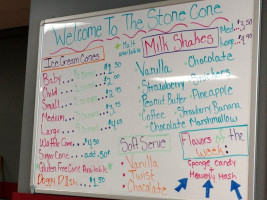 Welcome To The Stone Cone
Ice Cream Cones
* Malt available
Baby
Child
Small
Medium
Large
Waffle Cone
Sugar Cone add .50¢
Gluten Free Cone Available
Doggy Dish $1.50
Milk Shakes
Med.
Large
Vanilla
Chocolate
Strawberry
Snickers
Peanut Butter
Pineapple
Coffee
Strawberry Banana
Chocolate Marshmallow
Soft Serve
Vanilla
Twist
Chocolate
Flavors of the
Week:
Sponge Candy
+
Heavenly Hash